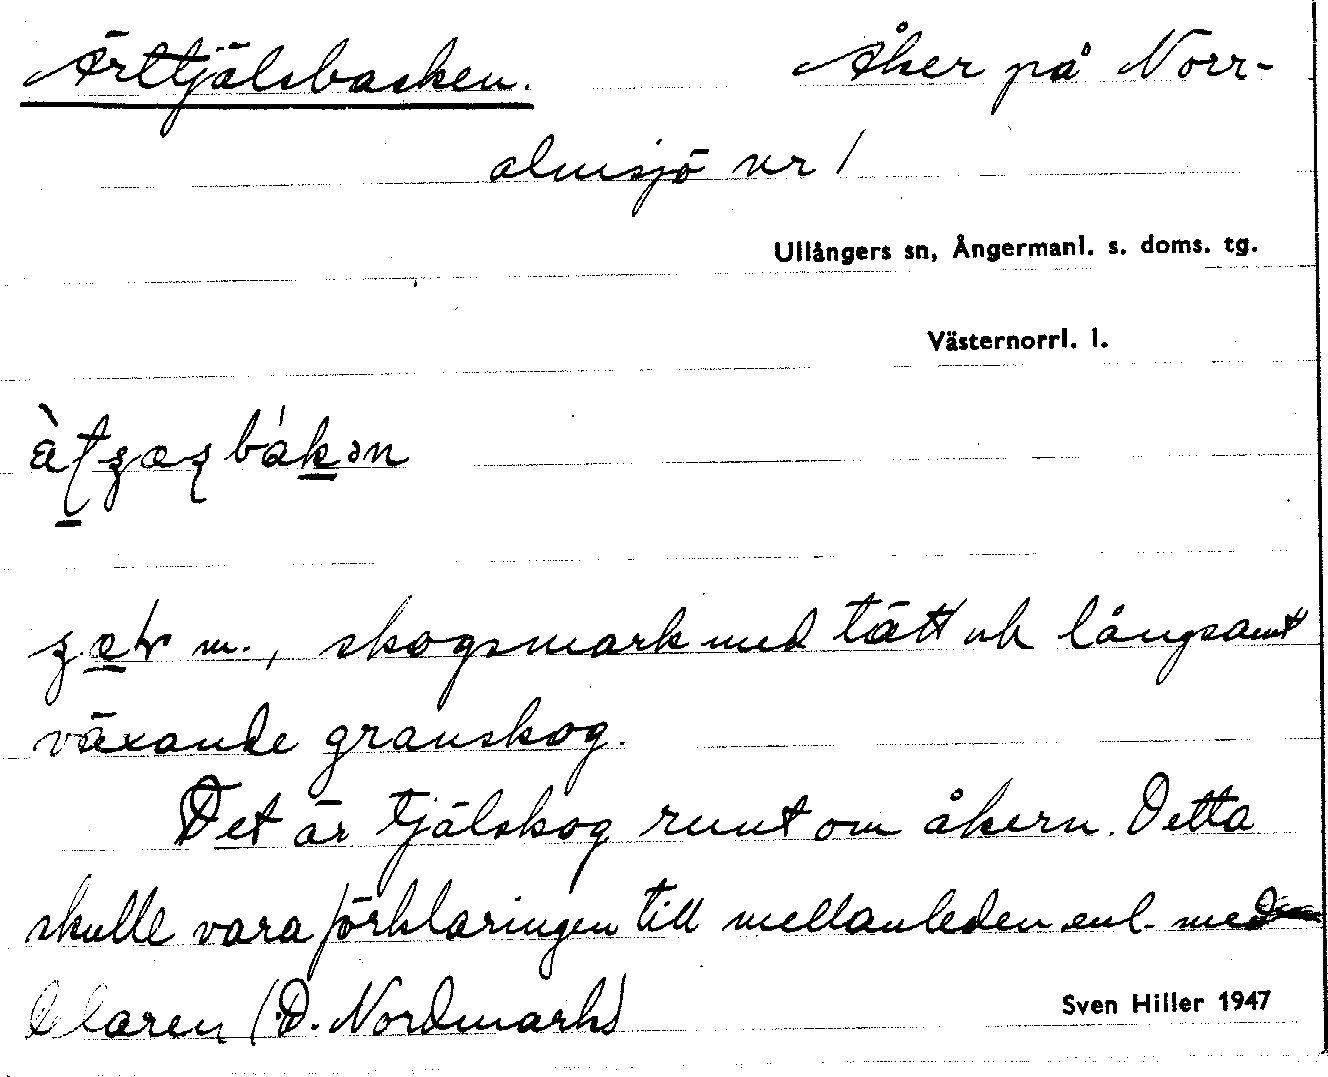 Ärttjälsbacken. Åker på Norr-
almsjö nr 1
Ullångers sn, Ångermanl. s. doms. tg.
Västernorrl. l.
m., skogsmark med tätt och långsamt
växande granskog.
Det är tjälskog runt om åkern. Detta
skulle vara förklaringen till mellanleden enl. med-
elaren (D. Nordmark)
Sven Hiller 1947